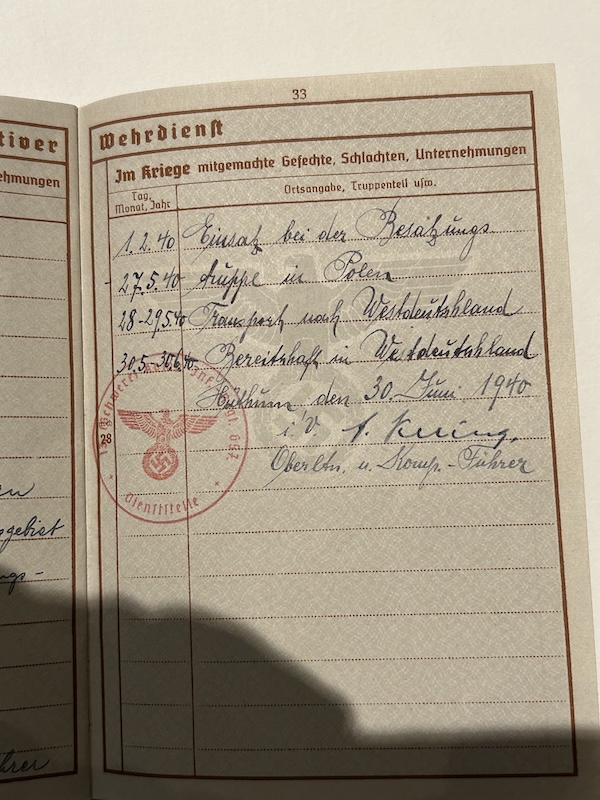 33
tiver
Wehrdienst
hmungen
Im Kriege mitgemachte Gefechte, Schlachten, Unternehmungen
Tag, Monat, Jahr
Ortsangabe, Truppenteil usw.
1.2.40 Einsatz bei der Besatzungs-
27.5.40 truppe in Polen
28-29.5.40 Transport nach Westdeutshland
30.5-30.6.40 Bereitshaft in Westdeutshland
den 30. Juni 1940
i.V.
Oberltn. u. Komp.-Führer
28
Dienststelle